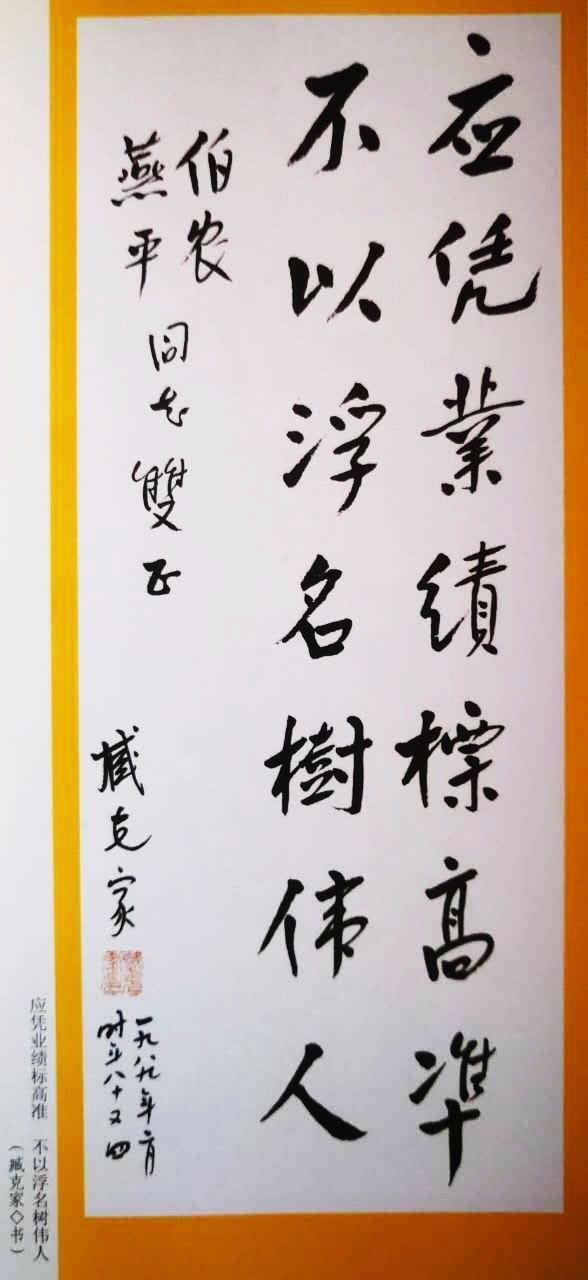 应凭業績標高準
不以浮名樹伟人
伯农
燕平
同志雙正
臧克家
一九八九年二月
时年八十又四
应凭业绩标高准　不以浮名树伟人
（臧克家◇书）